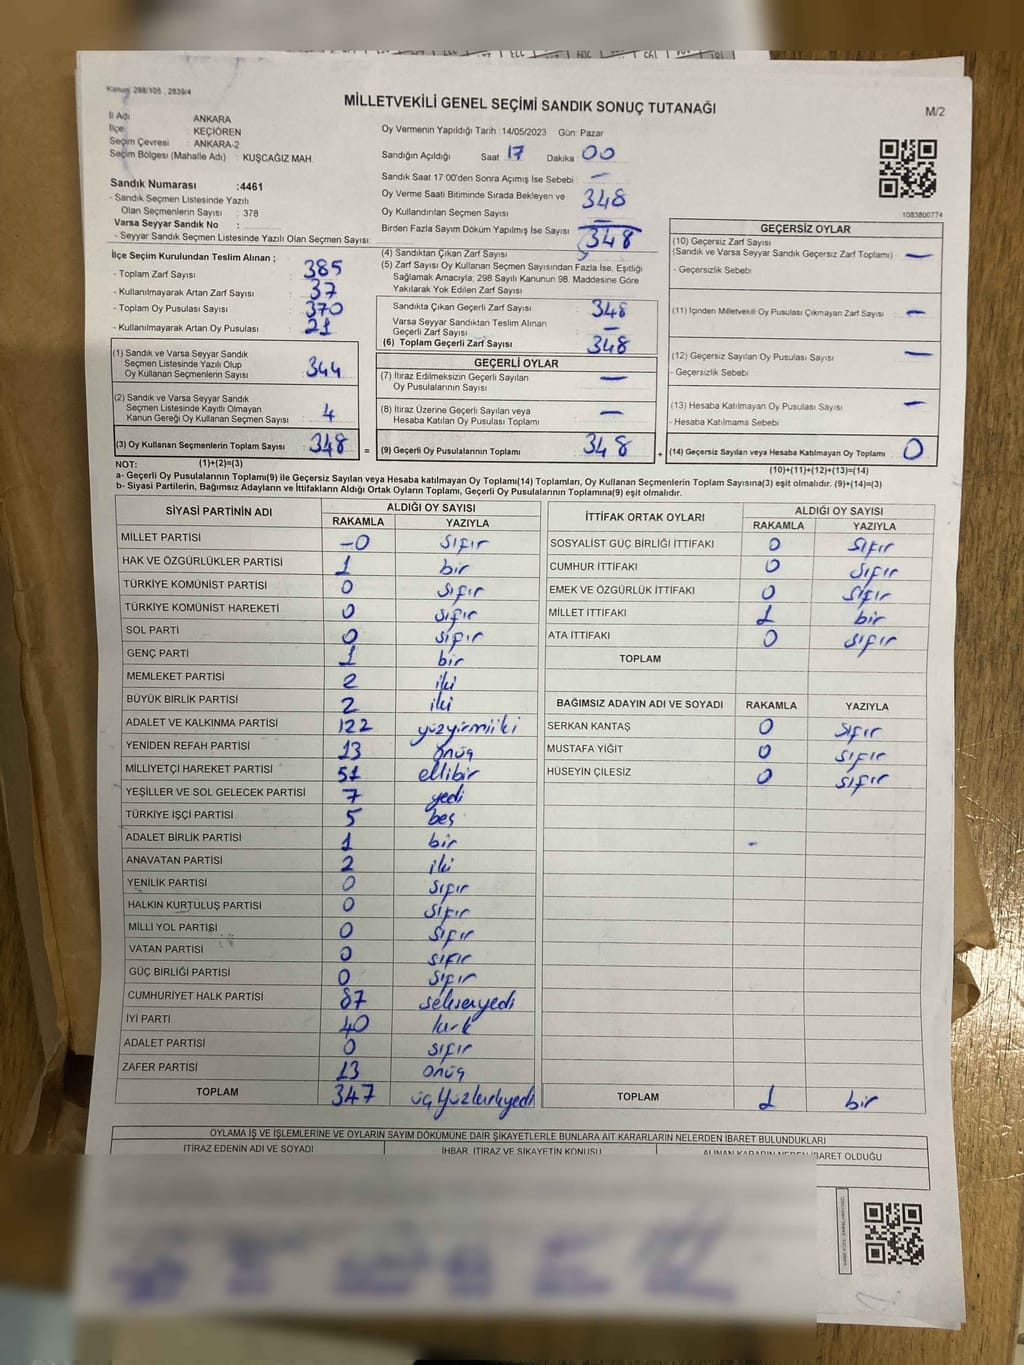 Kanun: 298/105 , 2839/4
MİLLETVEKİLİ GENEL SEÇİMİ SANDIK SONUÇ TUTANAĞI
M/2
İl Adı ANKARA
İlçe KEÇİÖREN
Seçim Çevresi : ANKARA-2
Seçim Bölgesi (Mahalle Adı) : KUŞCAĞIZ MAH.
Oy Vermenin Yapıldığı Tarih :14/05/2023 Gün: Pazar
Sandığın Açıldığı Saat 17 Dakika : 00
Sandık Saat 17:00'den Sonra Açımış İse Sebebi : —
Oy Verme Saati Bitiminde Sırada Bekleyen ve
Oy Kullandırılan Seçmen Sayısı 348
Birden Fazla Sayım Döküm Yapılmış İse Sayısı : —
1083800774
Sandık Numarası :4461
- Sandık Seçmen Listesinde Yazılı
Olan Seçmenlerin Sayısı : 378
Varsa Seyyar Sandık No :
- Seyyar Sandık Seçmen Listesinde Yazılı Olan Seçmen Sayısı:
İlçe Seçim Kurulundan Teslim Alınan ;
- Toplam Zarf Sayısı : 385
- Kullanılmayarak Artan Zarf Sayısı : 37
- Toplam Oy Pusulası Sayısı : 370
- Kullanılmayarak Artan Oy Pusulası : 21
(1) Sandık ve Varsa Seyyar Sandık
Seçmen Listesinde Yazılı Olup
Oy Kullanan Seçmenlerin Sayısı : 344
(2) Sandık ve Varsa Seyyar Sandık
Seçmen Listesinde Kayıtlı Olmayan
Kanun Gereği Oy Kullanan Seçmen Sayısı : 4
(3) Oy Kullanan Seçmenlerin Toplam Sayısı : 348 =
(1)+(2)=(3)
(4) Sandıktan Çıkan Zarf Sayısı 348
(5) Zarf Sayısı Oy Kullanan Seçmen Sayısından Fazla İse, Eşitliği
Sağlamak Amacıyla; 298 Sayılı Kanunun 98. Maddesine Göre
Yakılarak Yok Edilen Zarf Sayısı
Sandıkta Çıkan Geçerli Zarf Sayısı 348
Varsa Seyyar Sandıktan Teslim Alınan
Geçerli Zarf Sayısı : —
(6) Toplam Geçerli Zarf Sayısı : 348
GEÇERLİ OYLAR
(7) İtiraz Edilmeksizin Geçerli Sayılan
Oy Pusulalarının Sayısı : —
(8) İtiraz Üzerine Geçerli Sayılan veya
Hesaba Katılan Oy Pusulası Toplamı : —
(9) Geçerli Oy Pusulalarının Toplamı : 348 +
GEÇERSİZ OYLAR
(10) Geçersiz Zarf Sayısı
(Sandık ve Varsa Seyyar Sandık Geçersiz Zarf Toplamı) : —
- Geçersizlik Sebebi
(11) İçinden Milletvekili Oy Pusulası Çıkmayan Zarf Sayısı : —
(12) Geçersiz Sayılan Oy Pusulası Sayısı : —
- Geçersizlik Sebebi
(13) Hesaba Katılmayan Oy Pusulası Sayısı : —
- Hesaba Katılmama Sebebi
(14) Geçersiz Sayılan veya Hesaba Katılmayan Oy Toplamı : 0
(10)+(11)+(12)+(13)=(14)
NOT:
a- Geçerli Oy Pusulalarının Toplamı(9) ile Geçersiz Sayılan veya Hesaba katılmayan Oy Toplamı(14) Toplamları, Oy Kullanan Seçmenlerin Toplam Sayısına(3) eşit olmalıdır. (9)+(14)=(3)
b- Siyasi Partilerin, Bağımsız Adayların ve İttifakların Aldığı Ortak Oyların Toplamı, Geçerli Oy Pusulalarının Toplamına(9) eşit olmalıdır.
SİYASİ PARTİNİN ADI ALDIĞI OY SAYISI
RAKAMLA YAZIYLA
MİLLET PARTİSİ -0 sıfır
HAK VE ÖZGÜRLÜKLER PARTİSİ 1 bir
TÜRKİYE KOMÜNİST PARTİSİ 0 sıfır
TÜRKİYE KOMÜNİST HAREKETİ 0 sıfır
SOL PARTİ 0 sıfır
GENÇ PARTİ 1 bir
MEMLEKET PARTİSİ 2 iki
BÜYÜK BİRLİK PARTİSİ 2 iki
ADALET VE KALKINMA PARTİSİ 122 yüzyirmiiki
YENİDEN REFAH PARTİSİ 13 onüç
MİLLİYETÇİ HAREKET PARTİSİ 51 ellibir
YEŞİLLER VE SOL GELECEK PARTİSİ 7 yedi
TÜRKİYE İŞÇİ PARTİSİ 5 beş
ADALET BİRLİK PARTİSİ 1 bir
ANAVATAN PARTİSİ 2 iki
YENİLİK PARTİSİ 0 sıfır
HALKIN KURTULUŞ PARTİSİ 0 sıfır
MİLLİ YOL PARTİSİ 0 sıfır
VATAN PARTİSİ 0 sıfır
GÜÇ BİRLİĞİ PARTİSİ 0 sıfır
CUMHURİYET HALK PARTİSİ 87 seksenyedi
İYİ PARTİ 40 kırk
ADALET PARTİSİ 0 sıfır
ZAFER PARTİSİ 13 onüç
TOPLAM 347 üçyüzkırkyedi
İTTİFAK ORTAK OYLARI ALDIĞI OY SAYISI
RAKAMLA YAZIYLA
SOSYALİST GÜÇ BİRLİĞİ İTTİFAKI 0 sıfır
CUMHUR İTTİFAKI 0 sıfır
EMEK VE ÖZGÜRLÜK İTTİFAKI 0 sıfır
MİLLET İTTİFAKI 1 bir
ATA İTTİFAKI 0 sıfır
TOPLAM
BAĞIMSIZ ADAYIN ADI VE SOYADI RAKAMLA YAZIYLA
SERKAN KANTAŞ 0 sıfır
MUSTAFA YİĞİT 0 sıfır
HÜSEYİN ÇİLESİZ 0 sıfır
-
TOPLAM 1 bir
OYLAMA İŞ VE İŞLEMLERİNE VE OYLARIN SAYIM DÖKÜMÜNE DAİR ŞİKAYETLERLE BUNLARA AİT KARARLARIN NELERDEN İBARET BULUNDUKLARI
İTİRAZ EDENİN ADI VE SOYADI İHBAR, İTİRAZ VE ŞİKAYETİN KONUSU ALINAN KARARIN NEDEN İBARET OLDUĞU